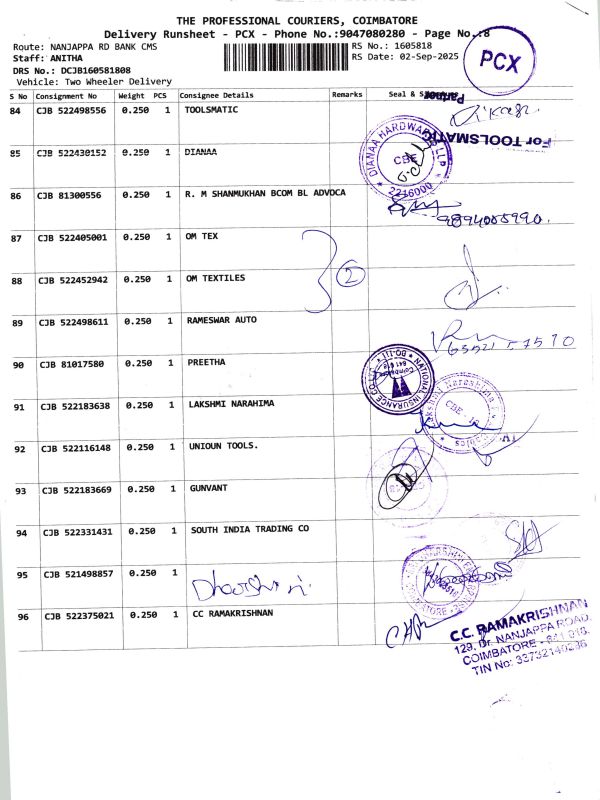 THE PROFESSIONAL COURIERS, COIMBATORE
Delivery Runsheet - PCX - Phone No.:9047080280 - Page No.:8
Route: NANJAPPA RD BANK CMS
RS No.: 1605818
Staff: ANITHA
RS Date: 02-Sep-2025
DRS No.: DCJB160581808
Vehicle: Two Wheeler Delivery
PCX
S No Consignment No Weight PCS Consignee Details Remarks Seal &
84 CJB 522498556 0.250 1 TOOLSMATIC
Partner
For TOOLSMATIC
85 CJB 522430152 0.250 1 DIANAA
DIANAA HARDWARE
CBE
2216000
86 CJB 81300556 0.250 1 R. M SHANMUKHAN BCOM BL ADVOCA
9894005990.
87 CJB 522405001 0.250 1 OM TEX
2
88 CJB 522452942 0.250 1 OM TEXTILES
89 CJB 522498611 0.250 1 RAMESWAR AUTO
90 CJB 81017580 0.250 1 PREETHA
NATIONAL INSURANCE CO
Coimbatore
641 018
91 CJB 522183638 0.250 1 LAKSHMI NARAHIMA
Lakshmi Narasimha
CBE
92 CJB 522116148 0.250 1 UNIOUN TOOLS.
93 CJB 522183669 0.250 1 GUNVANT
94 CJB 522331431 0.250 1 SOUTH INDIA TRADING CO
95 CJB 521498857 0.250 1
96 CJB 522375021 0.250 1 CC RAMAKRISHNAN
C.C. RAMAKRISHNAN
129, Dr. NANJAPPA ROAD,
COIMBATORE - 641 018.
TIN No: 33732140286